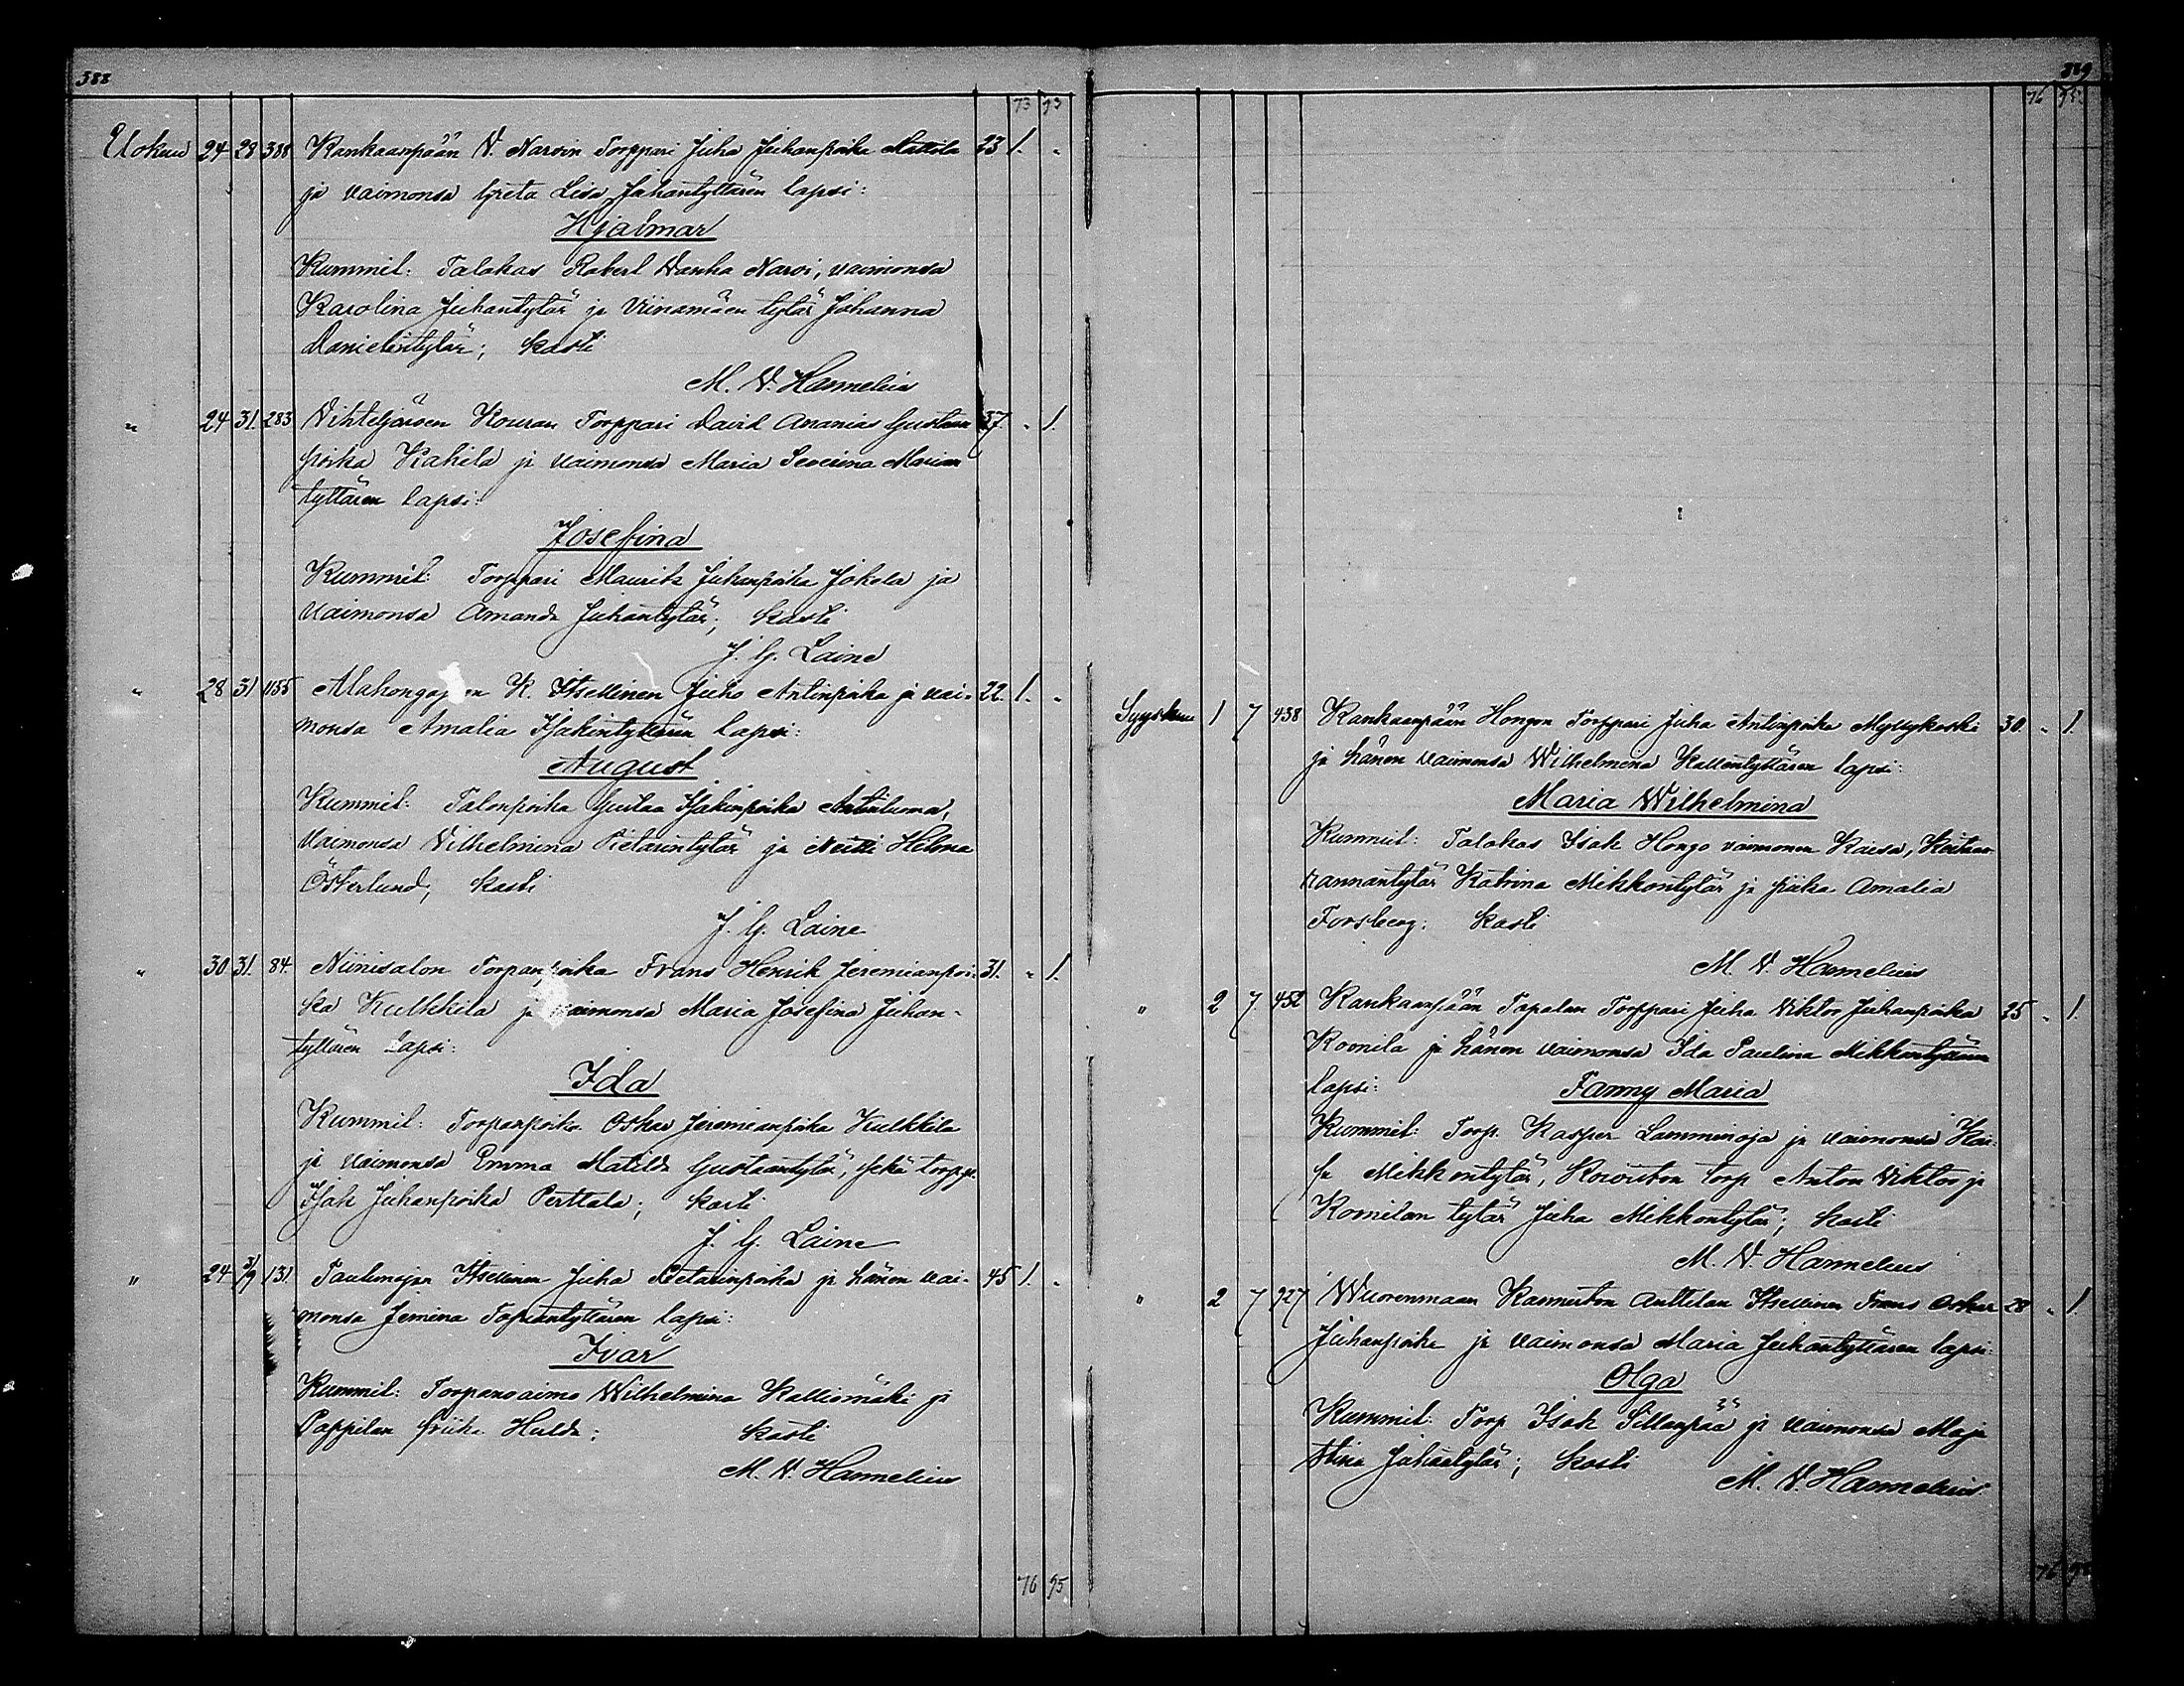 388
73 93
Elokuu 24 28 388 Kankaanpään V. Narvin Torppari Juha Juhanpoika Mattila 23 1. "
ja vaimonsa Greta Lisa Juhantyttären lapsi:
Hjalmar
Kummit: Talokas Robert Vanha Narvi, vaimonsa
Karolina Juhantytär ja Viinamäen tytär Johanna
Danielintytär; Kasti
M. V. Hannelius
" 24 31. 283 Vihteljärven Kouran Torppari David Ananias Gustaan 37. " 1.
poika Kahila ja vaimonsa Maria Severina Marian
tyttären lapsi:
Josefina
Kummit: Torppari Maurits Juhanpoika Jokela ja
vaimonsa Amanda Juhantytär; Kasti
J. G. Laine
" 28 31 1155 Alahongajoen K. Itsellinen Juho Antinpoika ja vai- 22. 1. "
monsa Amalia Isakintyttären lapsi:
August
Kummit: Talonpoika Gustaa Isakinpoika Antiluoma,
vaimonsa Vilhelmina Pietarintytär ja Neitti Helma
Österlund; Kasti
J. G. Laine
" 30 31. 84. Niinisalon Torpanpoika Frans Henrik Jeremianpoi- 31. " 1.
ka Kulkkila ja vaimonsa Maria Josefina Juhan-
tyttären Lapsi:
Ida
Kummit: Torpanpoika Oskar Jeremianpoika Kulkkila
ja vaimonsa Emma Matilda Gustaantytär, sekä torpp.
Isak Juhanpoika Perttala; Kasti
J. G. Laine
" 24 3/9 131. Paulinojan Itsellinen Juha Pietarinpoika ja hänen vai- 45 1. "
monsa Jemina Tapiantyttären lapsi:
Ivar
Kummit: Torpanvaimo Wilhelmina Kalliomäki ja
Pappilan piika Hulda; Kasti
M. V. Hannelius
76 95
389
76 95.
Syyskuu 1 7 438 Kankaanpään Hongon Torppari Juha Antinpoika Myllykoski 30. " 1.
ja hänen vaimonsa Wilhelmina Kallentyttären lapsi:
Maria Wilhelmina
Kummit: Talokas Isak Hongo vaimonen Kaisa,
rannantytär Katrina Mikkontytär ja piika Amalia
Forsberg; Kasti
M. V. Hannelius
" 2 7. 452 Kankaanpään Tapalan Torppari Juha Viktor Juhanpoika 25 " 1.
Kornila ja hänen vaimonsa Ida Paulina Mikkontyttären
lapsi: Fanny Maria
Kummit: Torp. Kasper Lamminoja ja vaimonsa Kai-
sa Mikkontytär, torp Anton Viktor ja
Kornilan tytär Juha Mikkontytär; Kasti
M. V. Hannelius
" 2 7 927 Wuorenmaan Anttilan Itsellinen Frans Oskar 28 " 1.
Juhanpoika ja vaimonsa Maria Juhantyttären lapsi:
Olga
Kummit: Torp Isak Sillanpää ja vaimonsa Maja
Stina Juhantytär; Kasti
M. V. Hannelius
76 98